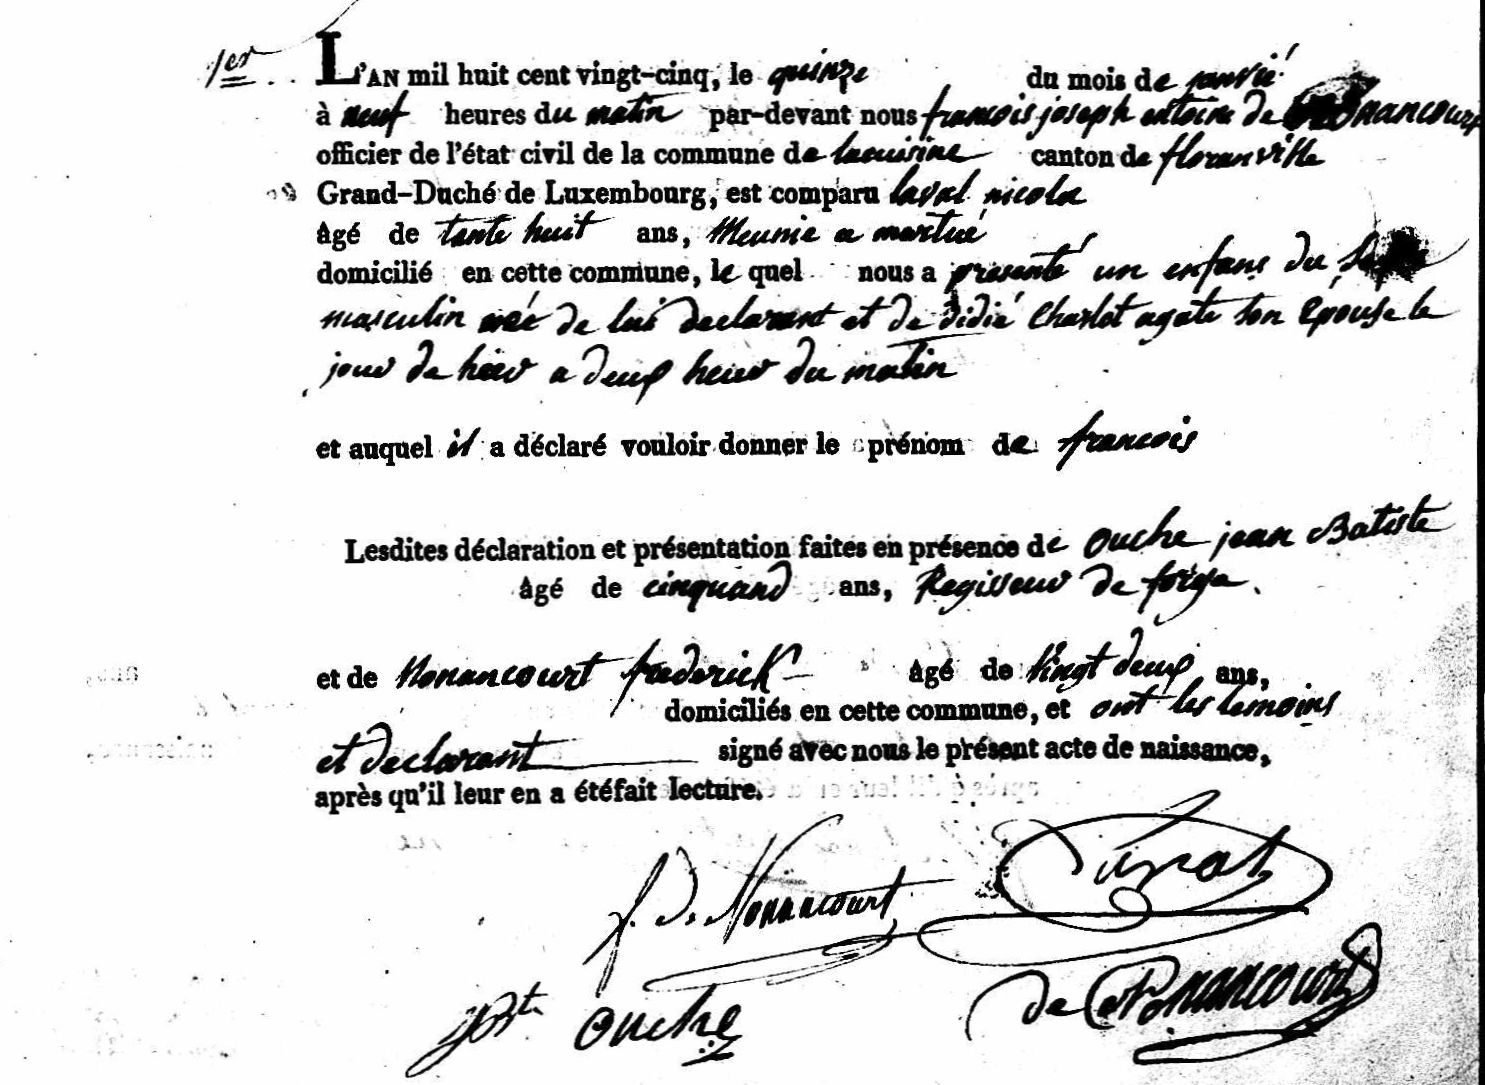 1er
L'AN mil huit cent vingt-cinq, le quinze du mois de janvié
à neuf heures du matin par-devant nous francois joseph antoine de Nonancourt
officier de l'état civil de la commune de lacuisine canton de floranville
Grand-Duché de Luxembourg, est comparu laval nicola
âgé de tante huit ans, Meunié a martué
domicilié en cette commune, le quel nous a presenté un enfans du Sexe
masculin née de lui declarant et de didié Charlot agate son épouse le
jour de hier a deux heur du matin
et auquel il a déclaré vouloir donner le prénom de francois
Lesdites déclaration et présentation faites en présence de Ouche jean Batiste
âgé de cinquand ans, Regisseur de forge
et de Nonancourt frederick âgé de vingt deux ans,
domiciliés en cette commune, et ont les temoins
et declarant signé avec nous le présent acte de naissance,
après qu'il leur en a été fait lecture.
f. d. Nonancourt
jBte Ouche
de Nonancourt